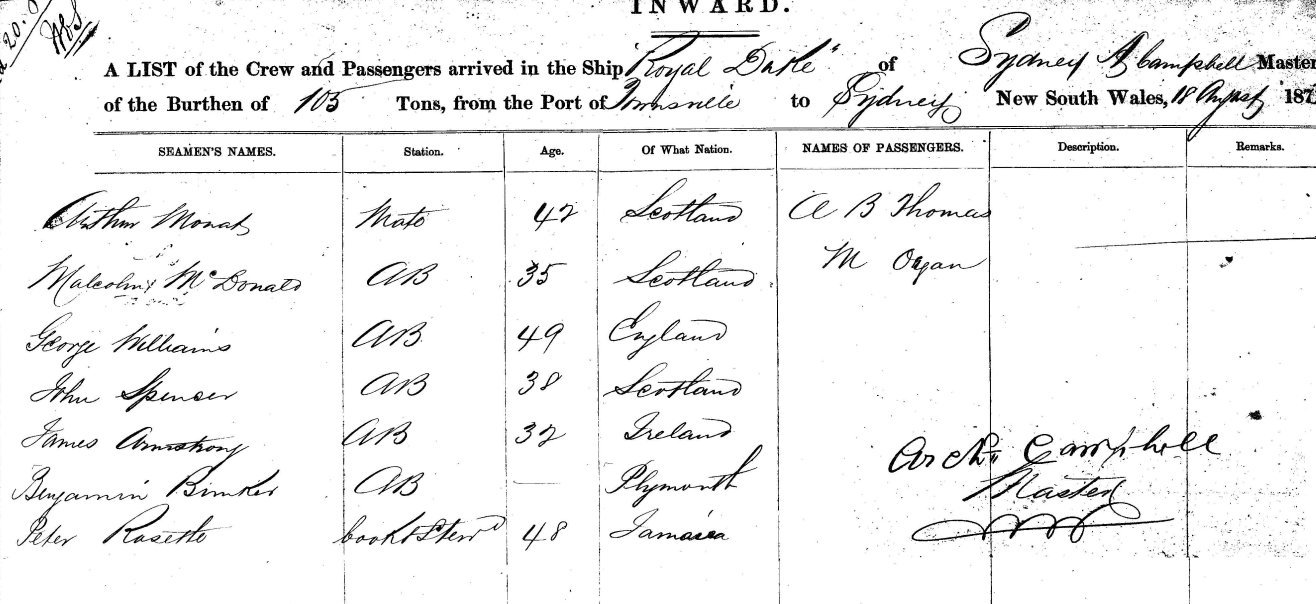 INWARD.
A LIST of the Crew and Passengers arrived in the Ship "Royal Duke" of Sydney A Campbell Master
of the Burthen of 105 Tons, from the Port of Townsville to Sydney New South Wales, 18 August 187
SEAMEN'S NAMES. Station. Age. Of What Nation. NAMES OF PASSENGERS. Description. Remarks.
Arthur Mate 42 Scotland A B Thomas
Malcolm McDonald AB 35 Scotland M Organ
George Williams AB 49 England
John Spencer AB 38 Scotland
James Armstrong AB 32 Ireland
Archd Campbell
Benjamin AB — Plymouth
Master
Peter Rosetto Cook & Stewd 48 Jamaica